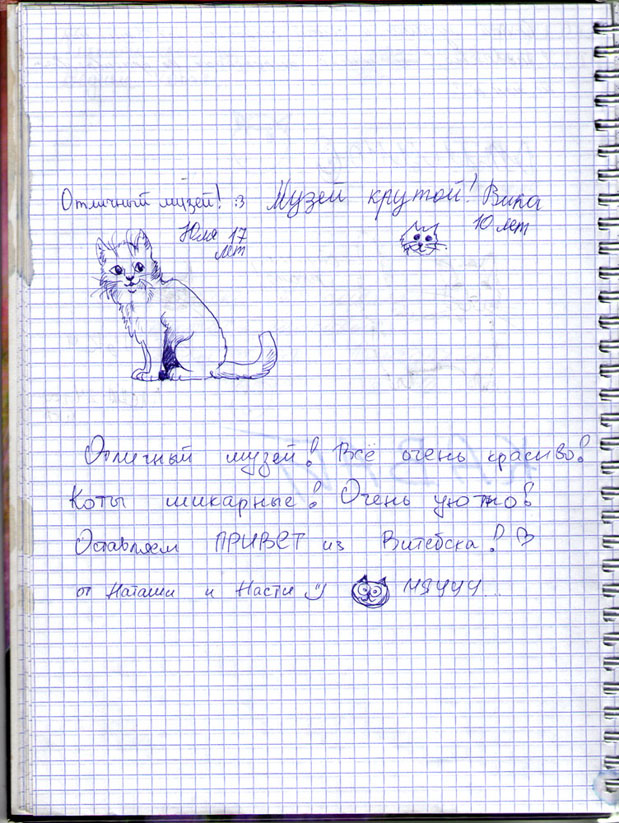 Отличный музей! :з
Музей крутой! Вика
Юля 17
лет
10 лет
Отличный музей! Всё очень красиво!
Коты шикарные! Очень уютно!
Оставляем ПРИВЕТ из Витебска! ♡
от Наташи и Насти :) МЯУУУ...